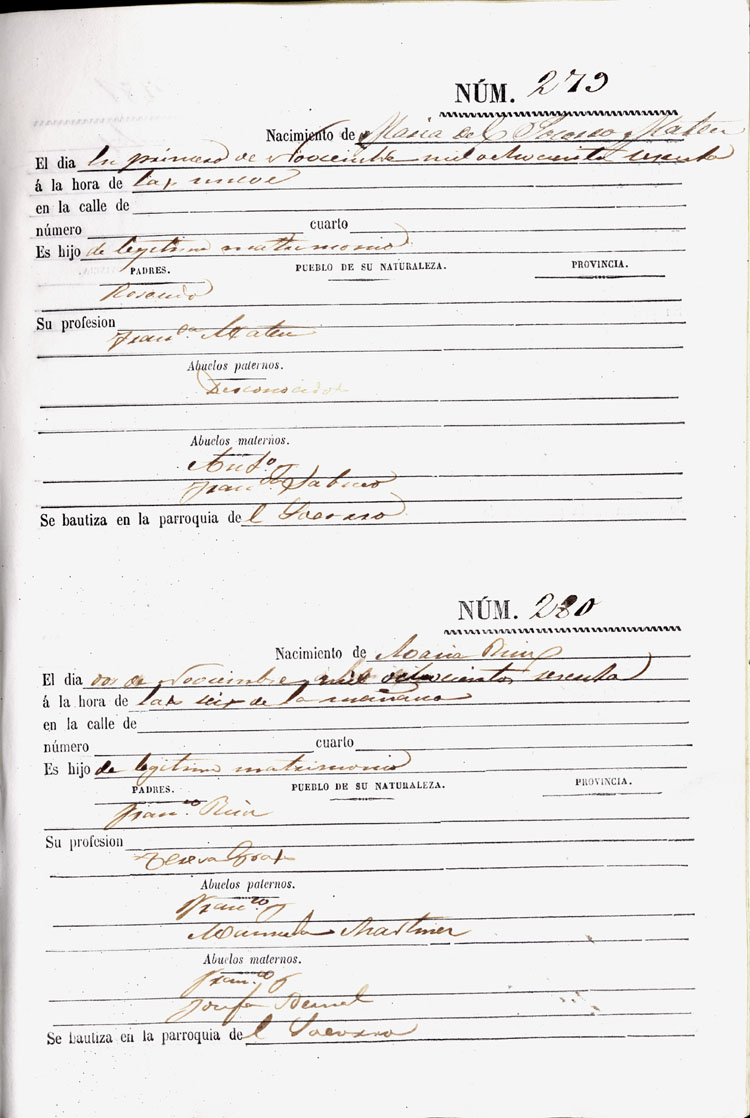 NÚM. 279
Nacimiento de Maria del Socorro y Mateu
El dia primero de Noviembre mil ochocientos sesenta
á la hora de las nueve
en la calle de
número cuarto
Es hijo de legitimo matrimonio
PADRES. PUEBLO DE SU NATURALEZA. PROVINCIA.
Rosendo
Su profesion
Franca Mateu
Abuelos paternos.
Desconocidos
Abuelos maternos.
Anto
Franca
Se bautiza en la parroquia de l Socorro
NÚM. 280
Nacimiento de Maria
El dia dos de Noviembre mil ochocientos sesenta
á la hora de las seis de la mañana
en la calle de
número cuarto
Es hijo de legitimo matrimonio
PADRES. PUEBLO DE SU NATURALEZA. PROVINCIA.
Franco
Su profesion
Teresa
Abuelos paternos.
Franco
Manuela Martinez
Abuelos maternos.
Franco
Josefa
Se bautiza en la parroquia de l Socorro